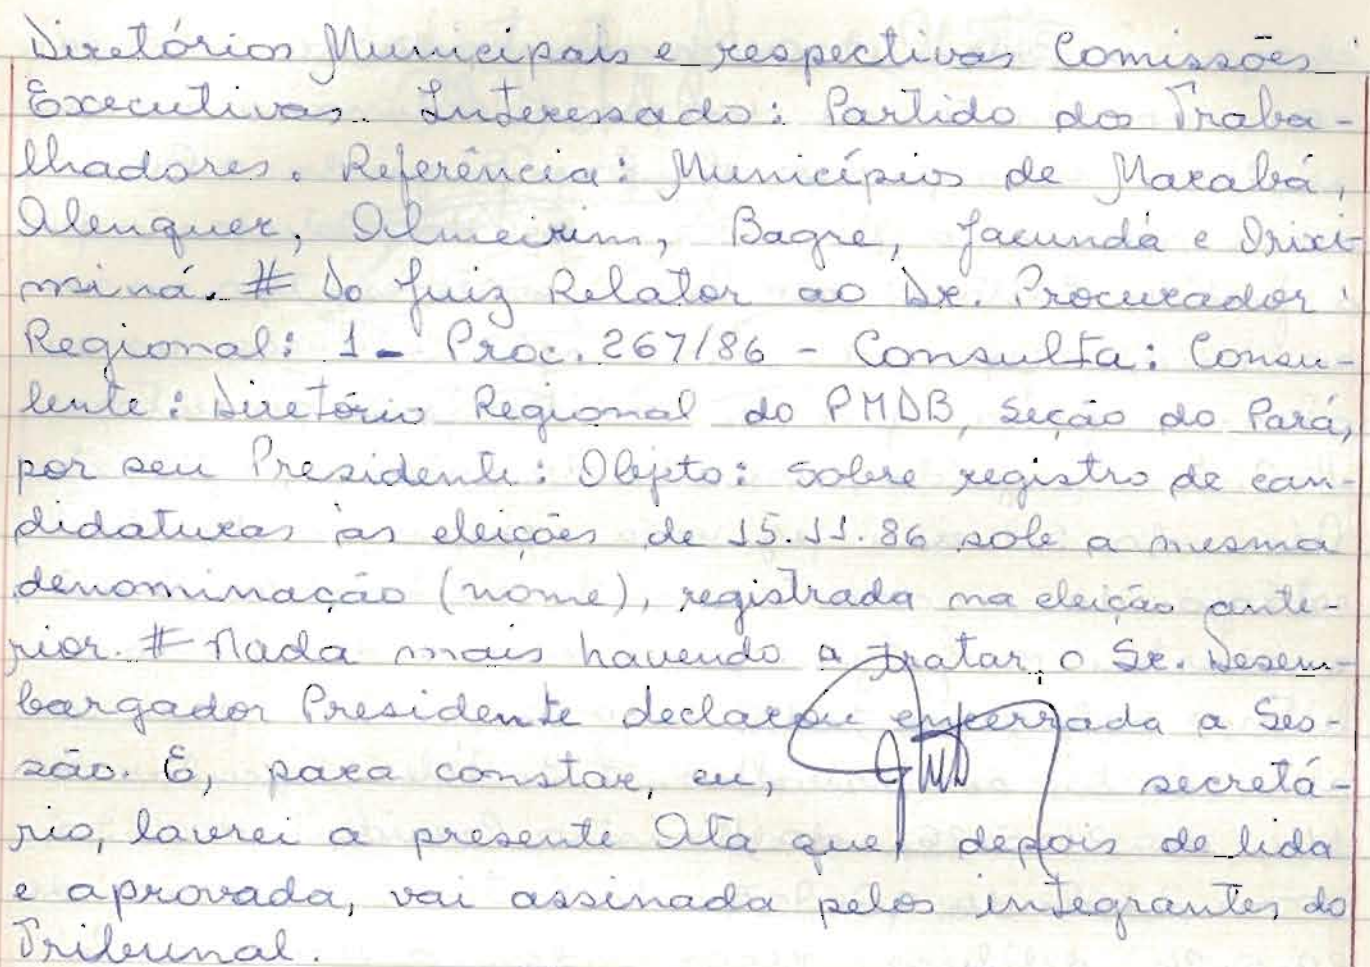 Diretórios Municipais e respectivas Comissões
Executivas. Interessado: Partido dos Traba-
lhadores. Referência: Municípios de Marabá,
Alenquer, Almeirim, Bagre, Jacundá e Orixi-
miná. # Do Juiz Relator ao Dr. Procurador
Regional: 1 - Proc. 267/86 - Consulta: Consu-
lente: Diretório Regional do PMDB, Seção do Pará,
por seu Presidente: Objeto: Sobre registro de can-
didaturas às eleições de 15.11.86 sob a mesma
denominação (nome), registrada na eleição ante-
rior. # Nada mais havendo a tratar, o Sr. Desem-
bargador Presidente declarou encerrada a Ses-
são. E, para constar, eu, secretá-
rio, lavrei a presente Ata que depois de lida
e aprovada, vai assinada pelos integrantes do
Tribunal.